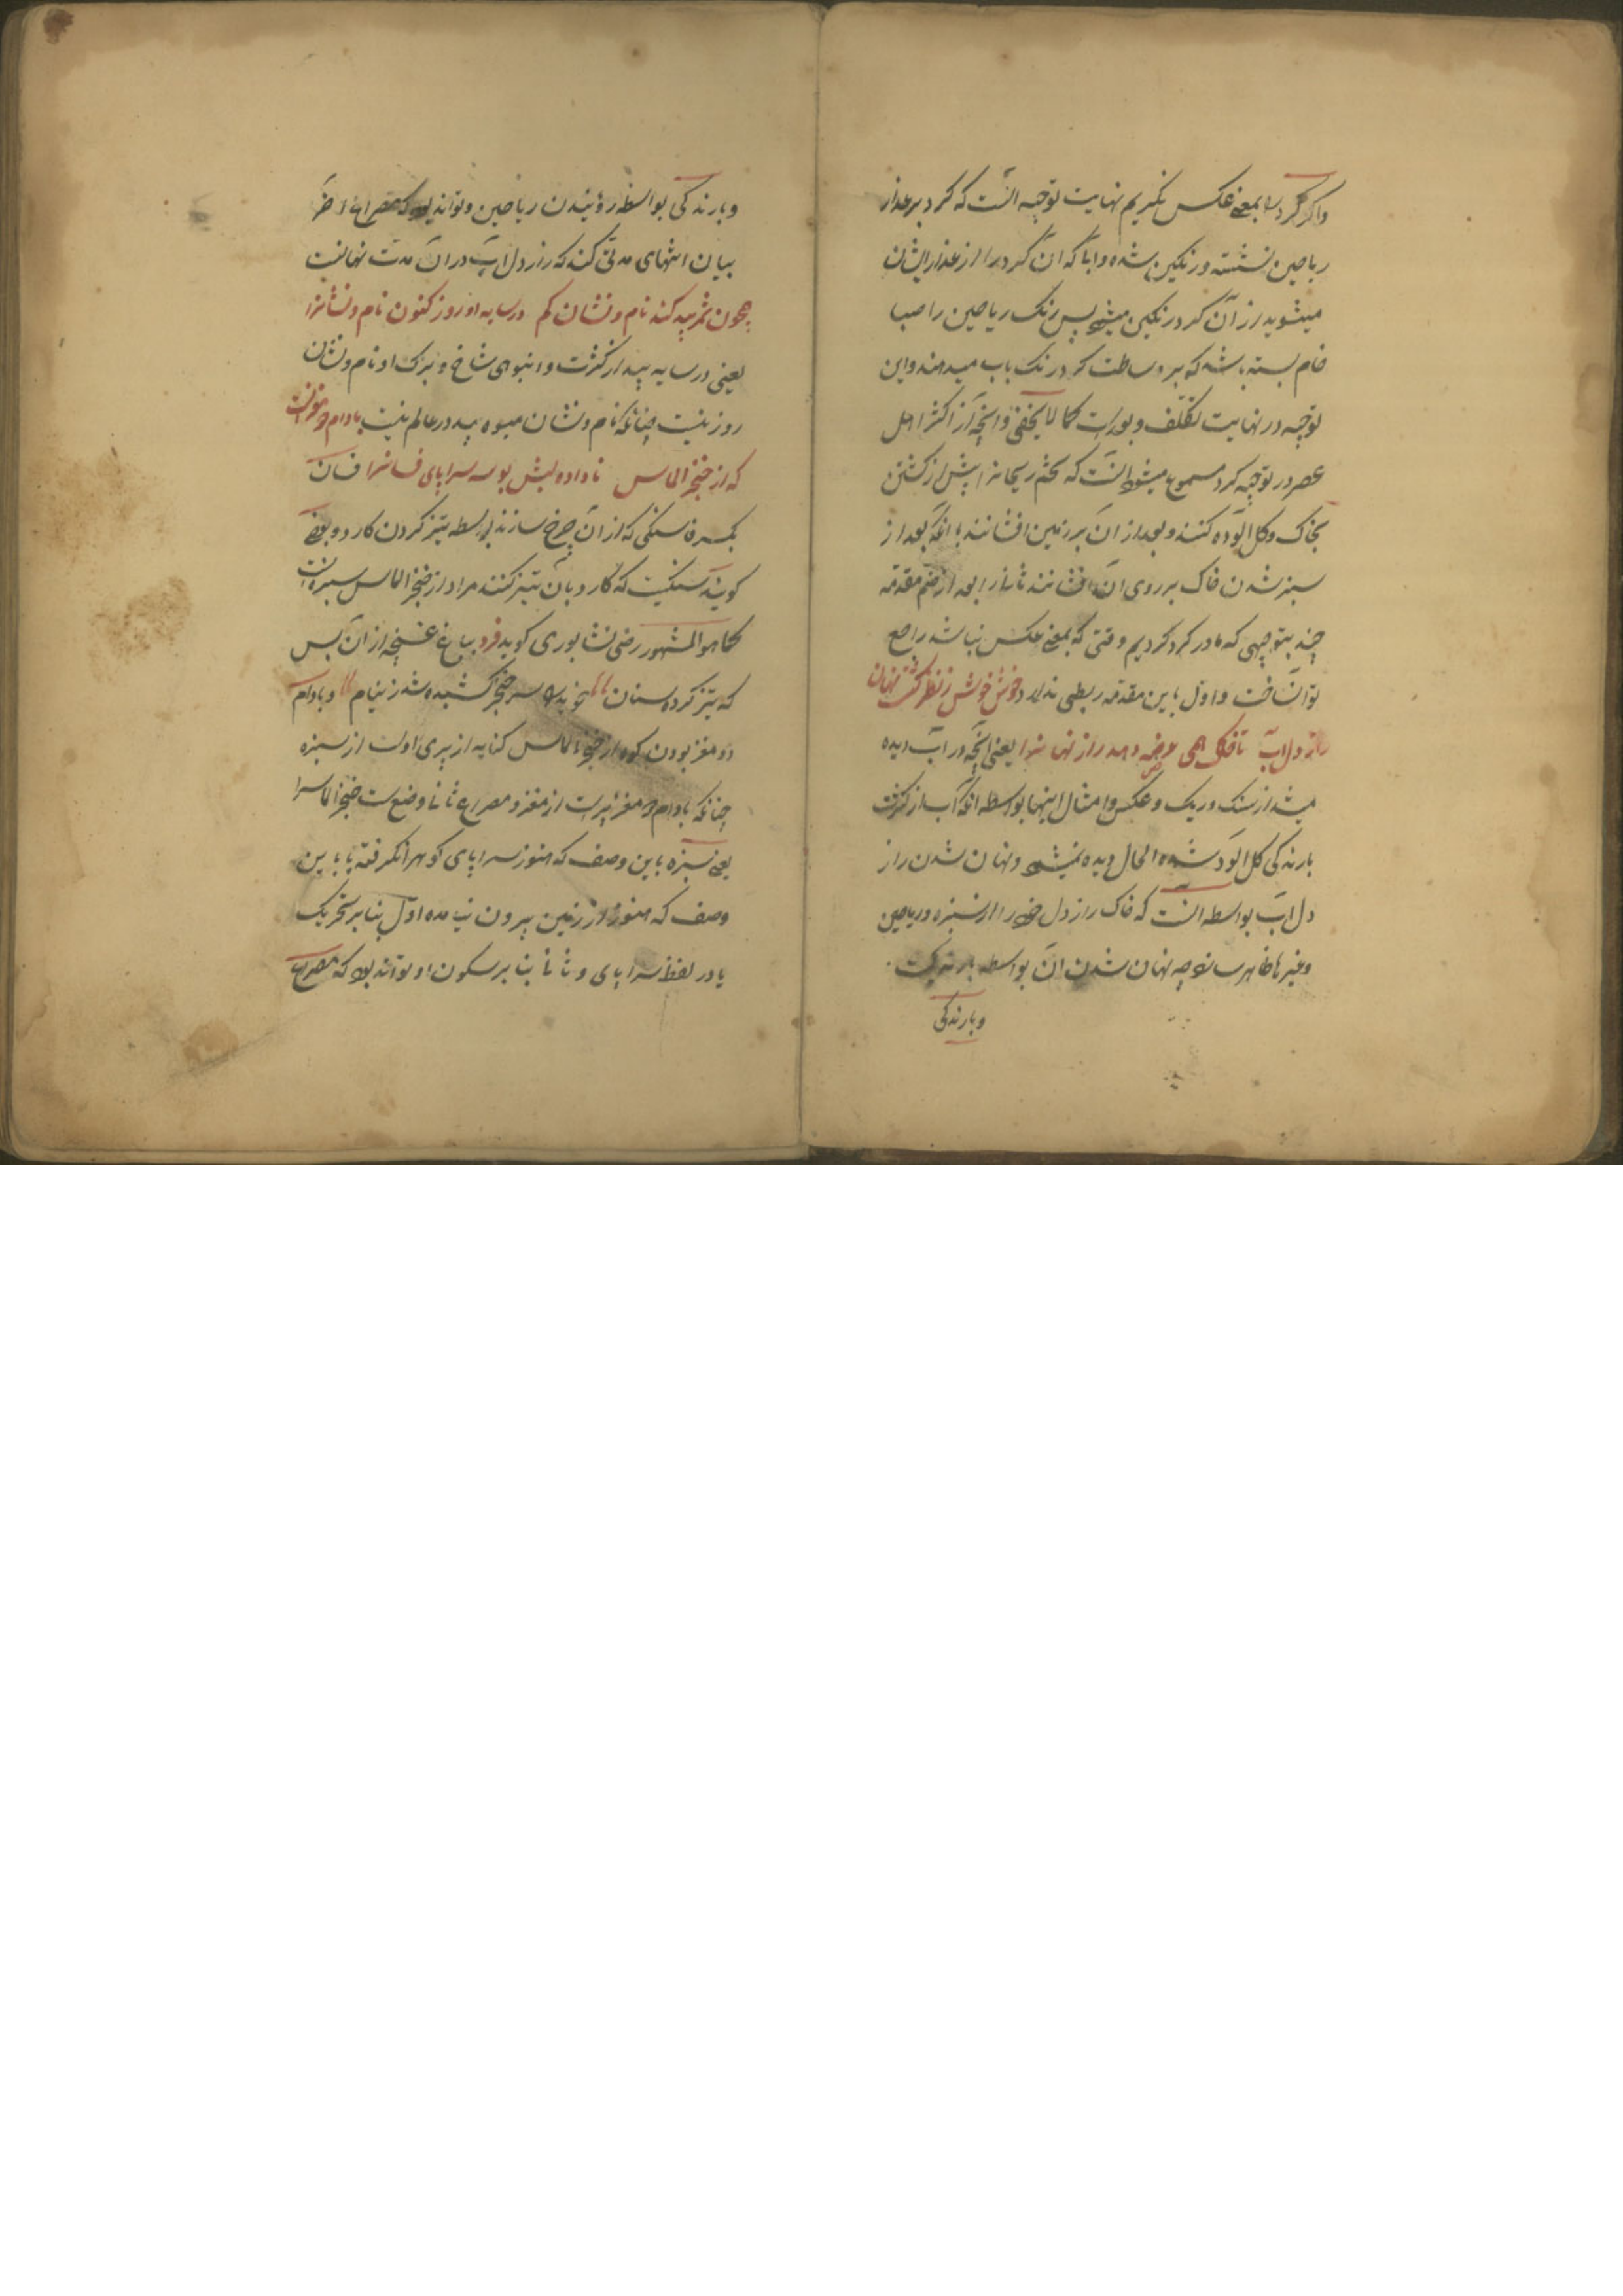 واکر کرد را بمعنی عکس نکریم نهایت توجیه انست که کرد بر عذار
ریاحین نشسته و رنکین شده و ابا که ان کرد را از عذار ایشان
میشوید از آن کرد رنکین میشود پس رنک ریاحین را صبا
خام بسته باشد که بی وساطت کرد رنک باب میدهند و این
توجیه در نهایت تکلف و بورات کما لا یخفی و انچه از اکثر اهل
عصر در توجیه کرد مسموع میشود انست که تخم ریحانرا پیش از کشتن
بخاک و کل الوده کنند و بعد از ان بر زمین افشانند یا انکه بعد از
سبز شدن خاک بر روی ان افشانند ثانیا را بعد از ضم مقدمه
چند بتوجیهی که ما در کرد کردیم وقتی که بمعنی عکس نباشد راجع
توان ساخت و اول باین مقدمه ربطی ندارد خوش خوش ز نظر کشت نهان
راز دل اب تا خاک همی عرضه دهد راز نهانرا یعنی انچه در اب دیده
میشد از سنک و ریک و عکس و امثال اینها بواسطه انکه آب از کثرت
بارندکی کل الود شده الحال دیده نمیشود و نهان شدن راز
دل اب بواسطه انست که خاک راز دل خود را از سبزه و ریاحین
و غیرها ظاهر سازد چه نهان شدن ان بواسطه بارندکیست
و بارندکی
و بارندکی بواسطه رویندن ریاحین و تواند بود که مصراع اخر
بیان انتهای مدتی کند که راز دل اب در ان مدت نهانست
چون ثمر بید کند نام و نشان کم در سایه او روز کنون نام و نشانرا
یعنی در سایه بید از کثرت و انبوهی شاخ و برک او نام و نشان
روز نیست چنانکه نام و نشان میوه بید در عالم نیست بادام دو مغزست
که از خنجر الماس ناداده لبش بوسه سراپای فسانرا فسان
بکسر فا سنکی که از ان چرخ سازند بواسطه تیز کردن کارد و بعضی
کویند سنکیست که کارد بان تیز کنند مراد از خنجر الماس سبزه است
کما هو المشهور رضی نشابوری کوید فرد بباغ غنچه از ان پس
که تیز کرده سنان خوید سر خنجر کشیده شد ز نیام و بادام
دو مغز بودن کوه از خنجر الماس کنایه از پری اوست از سبزه
چنانکه بادام دو مغز پرست از مغز و مصراع ثانی وضع ست خنجر الماسرا
یعنی سبزه باین وصف که هنوز سراپای کوهرا نکرفته یا باین
وصف که هنوز از زمین بیرون نیامده اول بنا بر تحریک
یا در لفظ سراپای و ثانی بنا بر سکون او تواند بود که مصراع